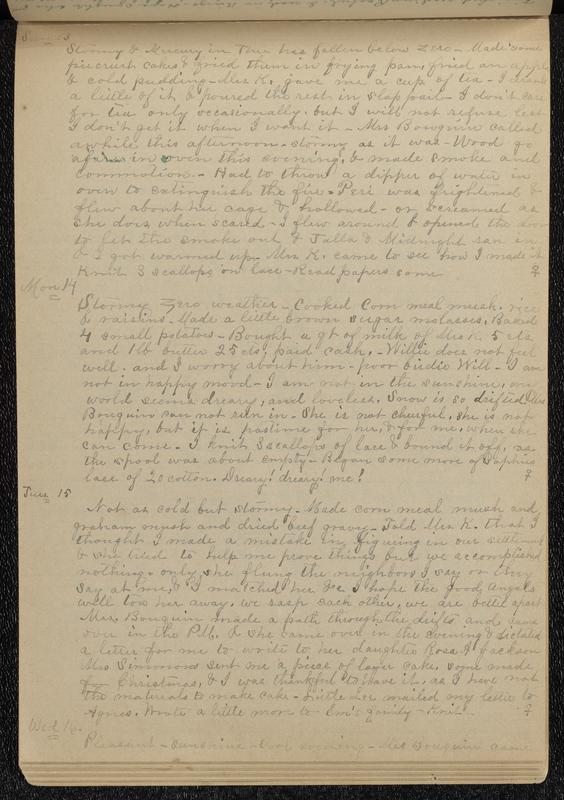 Sun 13
Stormy & Mercury in Ther has fallen below zero - Made some
piecrust cakes & fried them in frying pan, fried an apple
& cold pudding - Mrs K. gave me a cup of tea - I drank
a little of it & poured the rest in slop pail - I don't care
for tea only occasionally, but I will not refuse lest
I don't get it when I want it - Mrs Bouquin called
awhile this afternoon - stormy as it was - Wood go
afire in oven this evening, & made smoke and
commotion. - Had to throw a dipper of water in
oven to extinguish the fire - Peri was frightened &
flew about her cage & hollowed - or screamed as
she does when scared - I flew around & opened the door
to let the smoke out & Talla & Midnight ran in
& I got warmed up - Mrs K. came to see how I made it
Knit 3 scallops on lace - Read papers some
Mon 14
Stormy Zero weather - Cooked Corn meal mush, rice
& raisins. Made a little brown sugar molasses. Baked
4 small potatoes - Bought a qt of milk of Mrs K. 5 cts,
and 1 lb butter 25 cts, paid cash. - Willie does not feel
well, and I worry about him - poor birdie Will - I am
not in happy mood - I am not in the sunshine, my
world seems dreary, and loveless. Snow is so drifted Mrs
Bouquin can not run in - She is not cheerful, she is not
happy, but it is pastime for her, & for me, when she
can come. - I knit 3 scallops of lace & bound it off, as
the spool was about empty - Began some more of Daphnes
lace of 20 cotton. Dreary! dreary! me!
Tues 15
Not as cold but stormy - Made corn meal mush and
graham mush and dried beef gravy - Told Mrs K. that I
thought I made a mistake in figuring in our settlement
& she tried to help me prove things but we accomplished
nothing, only she flung the neighbors say or they
say at me, & I matched her &c I hope the good angels
will tow her away. we rasp each other, we are better apart
Mrs. Bouquin made a path through the drifts and came
over in the P.M. & she came over in the evening & dictated
a letter for me to write to her daughter Rosa A Jackson
Mrs Simmons sent me a piece of layer cake, some made
for Christmas, & I was thankful to have it, as I have not
the materials to make cake - mailed my letter to
Agnes. Wrote a little more to Em's family - Knit -
Wed 16.
Pleasant - sunshine - evening - Mrs Bouquin came